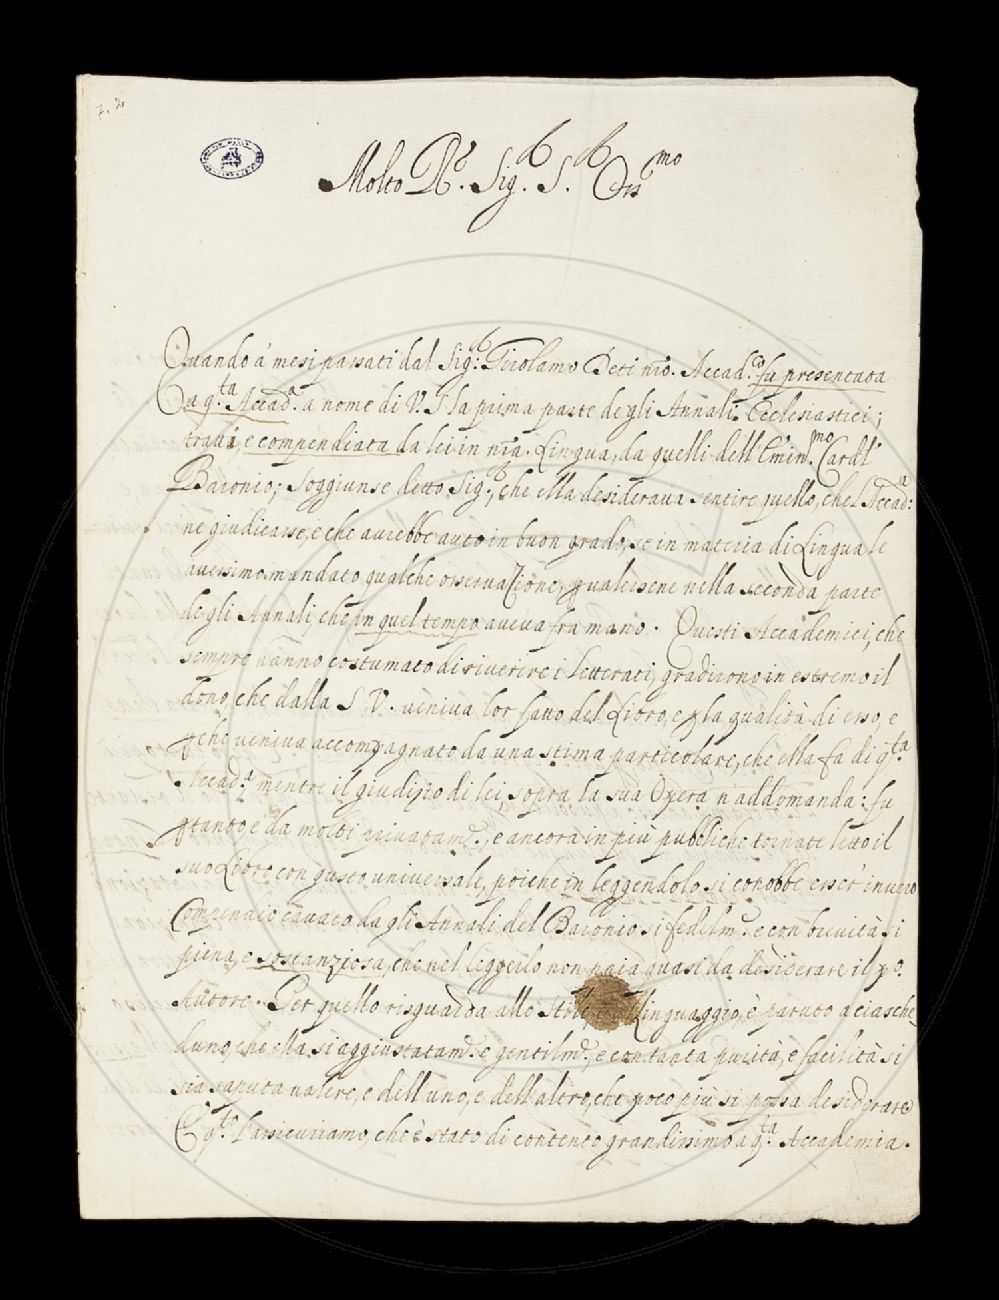 7. 2
Molto R.do Sig.r S.r Oss.mo
Quando a' mesi passati dal Sig.r Girolamo Deti nro. Accad.co fu presentata
a q.ta Accad.a a nome di V. S. la prima parte degli Annali Ecclesiastici;
tradti, e compendiata da lei in nra. Lingua, da quelli dell'Emin.mo Card.l
Baronio; soggiunse detto Sig.r, che ella desiderava sentire quello, che l'Accad.a
ne giudicasse, e che avrebbe auto in buon grado, se in materia di Lingua le
avessimo mandato qualche osservazione, p valersene nella seconda parte
degli Annali, che in quel tempo aveva fra mano. Questi Accademici, che
sempre hanno costumato di riverire i Letterati, gradirono in estremo il
dono, che dalla S. V. veniva lor fatto del Libro, e p la qualità di esso, e
p che veniva accompagnato da una stima particolare, che ella fa di q.ta
Accad.a mentre il giudizio di lei, sopra la sua Opera n'addomanda: fu
p tanto e da molti privatam.e, e ancora in più pubbliche tornate letto il
suo Libro con gusto universale, poiche in leggendolo si conobbe esser' invero
Compendio cavato dagli Annali del Baronio sì fedelm.e e con brevità sì
piena, e sostanziosa, che nel leggerlo non paia quasi da desiderare il p.o
Autore. Per quello risguarda allo Stile, e Linguaggio, è paruto a ciasche
duno, che ella sì aggiustatam.e e gentilm.e, e con tanta purità, e facilità si
sia saputa valere, e dell'uno, e dell'altro, che poco più si possa desiderare
E q.to l'assicuriamo, che è stato di contento grandissimo a q.ta Accademia.